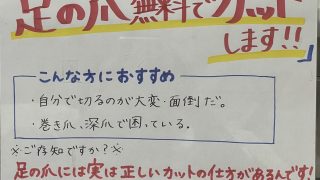 足の爪 無料でカット
します!!」
こんな方におすすめ
・自分で切るのが大変・面倒だ。
・巻き爪、深爪で困っている。
※ご存知ですか?※
足の爪には実は正しいカットの仕方があるんです!